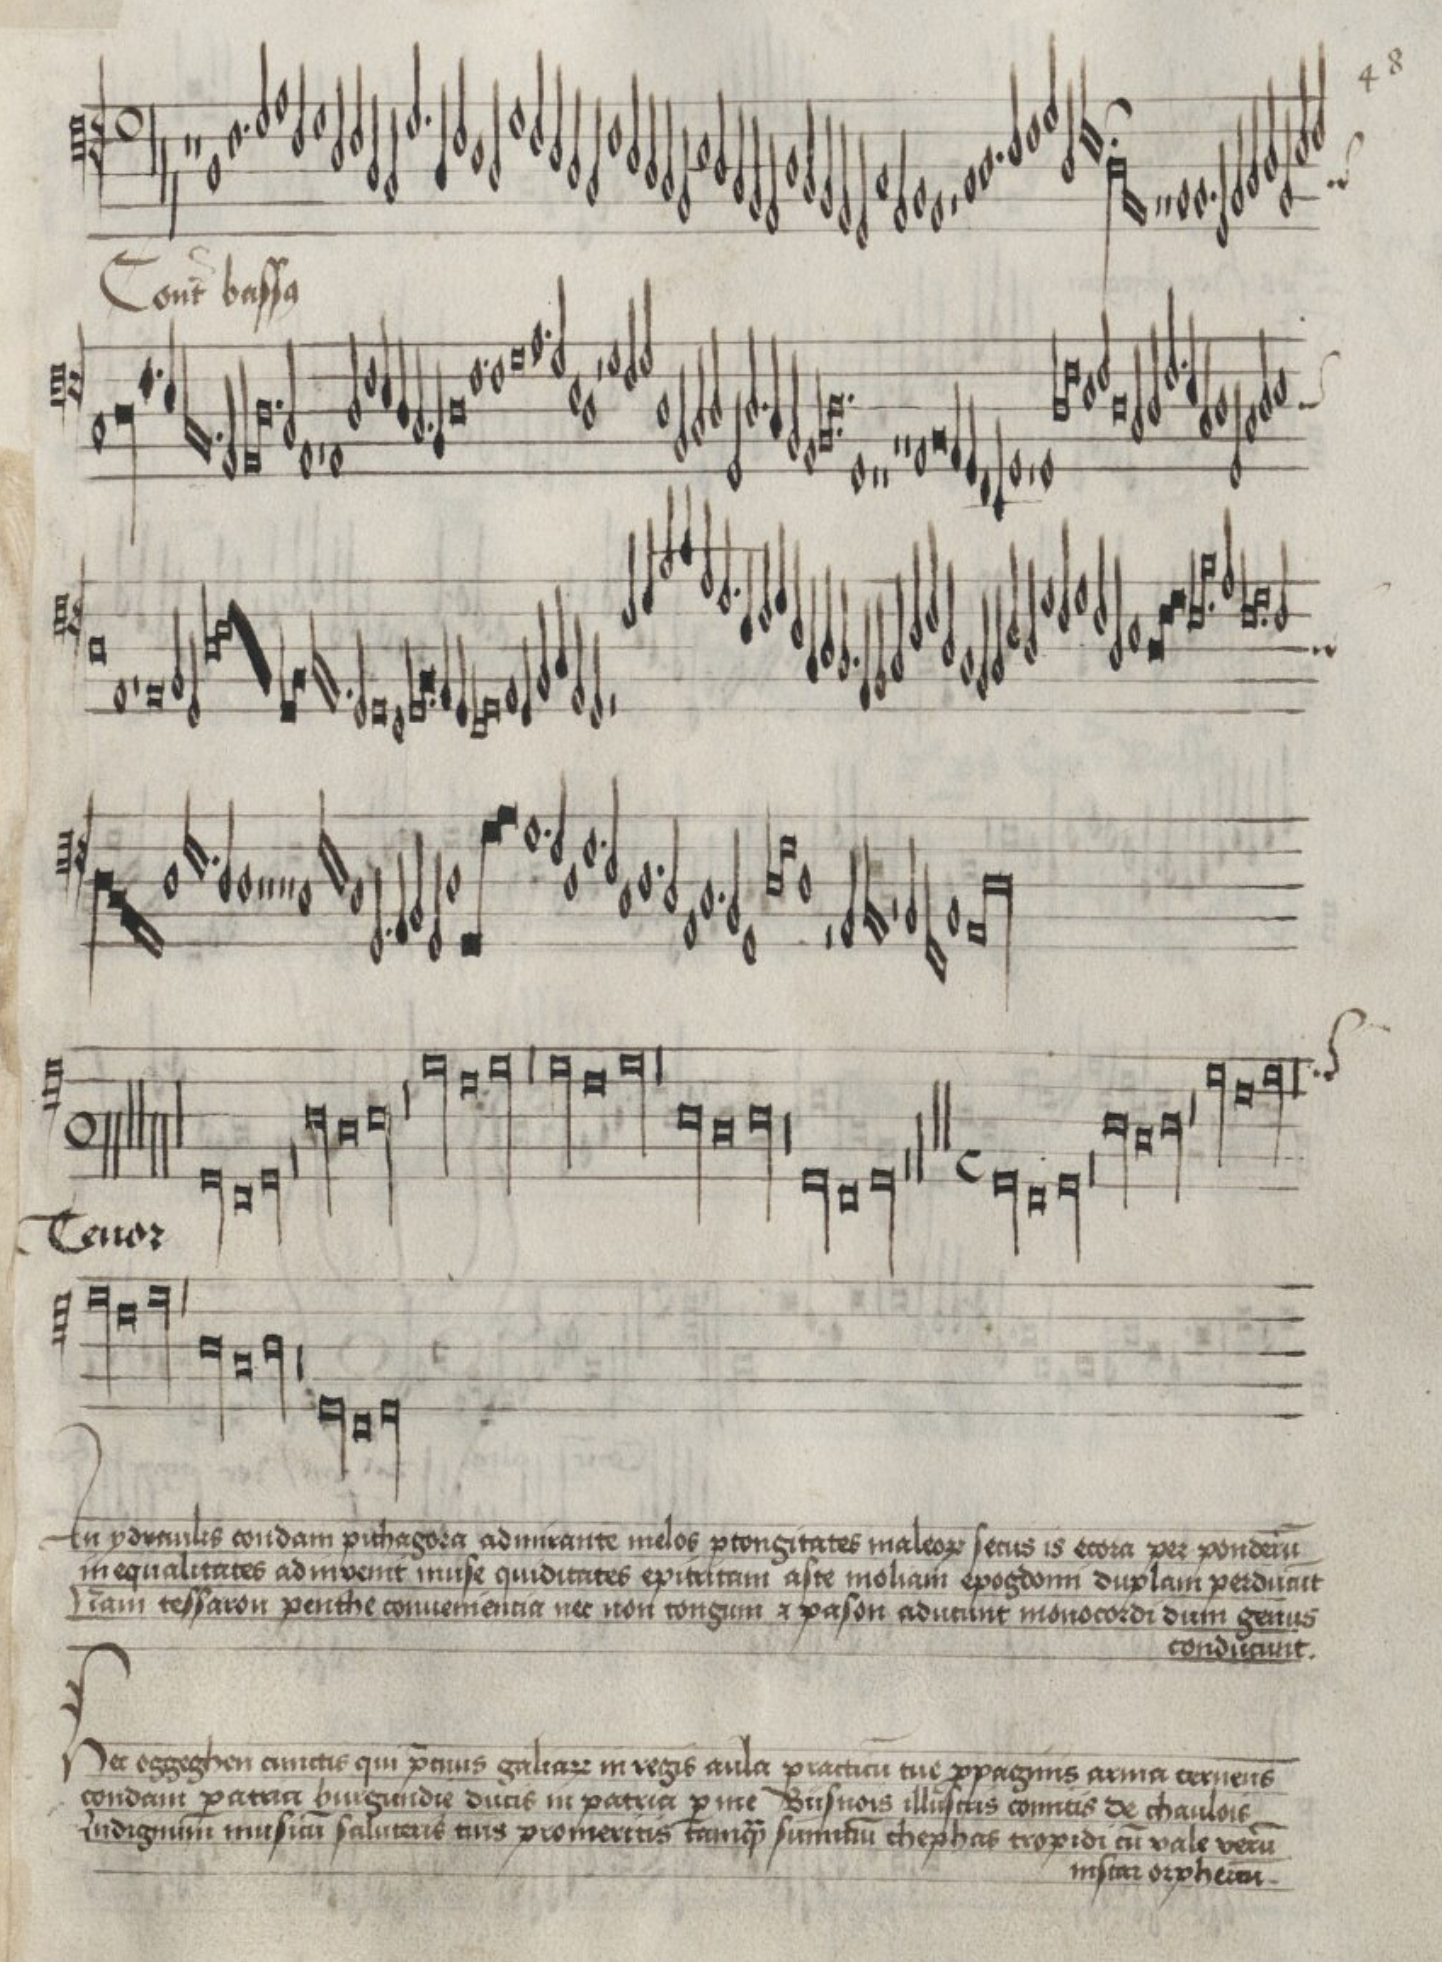 48
Cont̄ bassa
Tenor
In ydraulis condam pithagora admirante melos ptongitates maleoꝝ secus is ecora per ponderū
in equalitates ad invenit muse quiditates epitritam aste moliam epogdonu duplam perducut
Nam tessaron penthe convenientia nec non tongum & pason adducunt monocordi dum genus
conducunt.
Hec oggeghen cunctis qui p̄cinis galiaꝝ in regis aula practicū tue ꝓpaginis arma cernens
condam patria burgundie ducis in patria ꝑ me Busnois illustris comitis de chaulois
Indignum musicū saluteris tuis pro meritis tamꝙ̄ summū chephas tropidi cū vale verū
instar orpheicū.